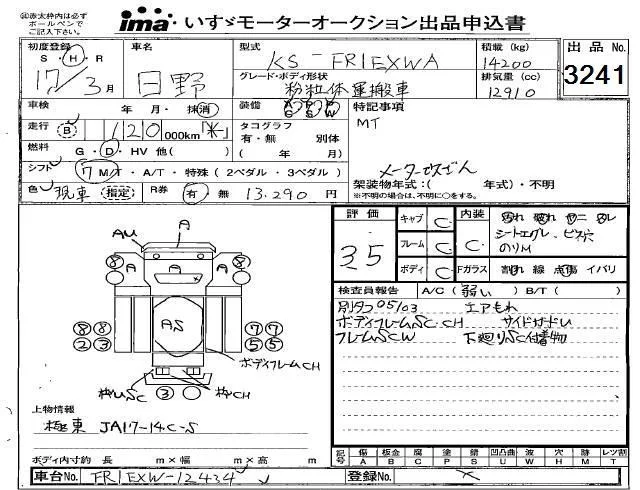 ㊟赤太枠内は必ず
ボールペンで
ご記入下さい。
ima・いすゞモーターオークション出品申込書
初度登録 S・H・R 17/3月
車名 日野
型式 KS-FR1EXWA
積載 (kg) 14200
出品No. 3241
グレード・ボディ形状 粉粒体運搬車
排気量 (cc) 12910
車検 年 月・抹消
装備 A/C P/S P/W
特記事項
MT
走行 B 120 000km
タコグラフ 有・無 別体
( 年 月)
燃料 G・D・HV 他( )
シフト 7 M/T・A/T・特殊 (2ペダル・3ペダル)
メーターセズごん
架装物年式:( 年式)・不明
※不明の場合は、不明に○をする。
色 現車 指定 R券 有・無 13.290円
評価 3.5
キャブ C
フレーム C
ボディ C
内装 C
シートエグレ・ビス穴
のりM
Fガラス 割れ 線 点傷 イバリ
検査員報告 A/C (弱い) B/T ( )
別タコ05/03 エアもれ
ボディフレームSC.CH サイドガードU
フレームSCW 下廻りSC付着物
AU A A
⑧ A A ⑧
AS
⑧⑧ ⑦⑦
②③ ⑤⑤
ボディフレームCH
枠USC ③ 枠CH
上物情報
極東 JA17-14C-S
ボディ内寸約 長 m×幅 m×高 m
記号 傷A 板金B 腐C 塗P 錆S 凹凸曲U 波W 穴H 跡M レツ割T
車台No. FR1EXW-12434
登録No. ×